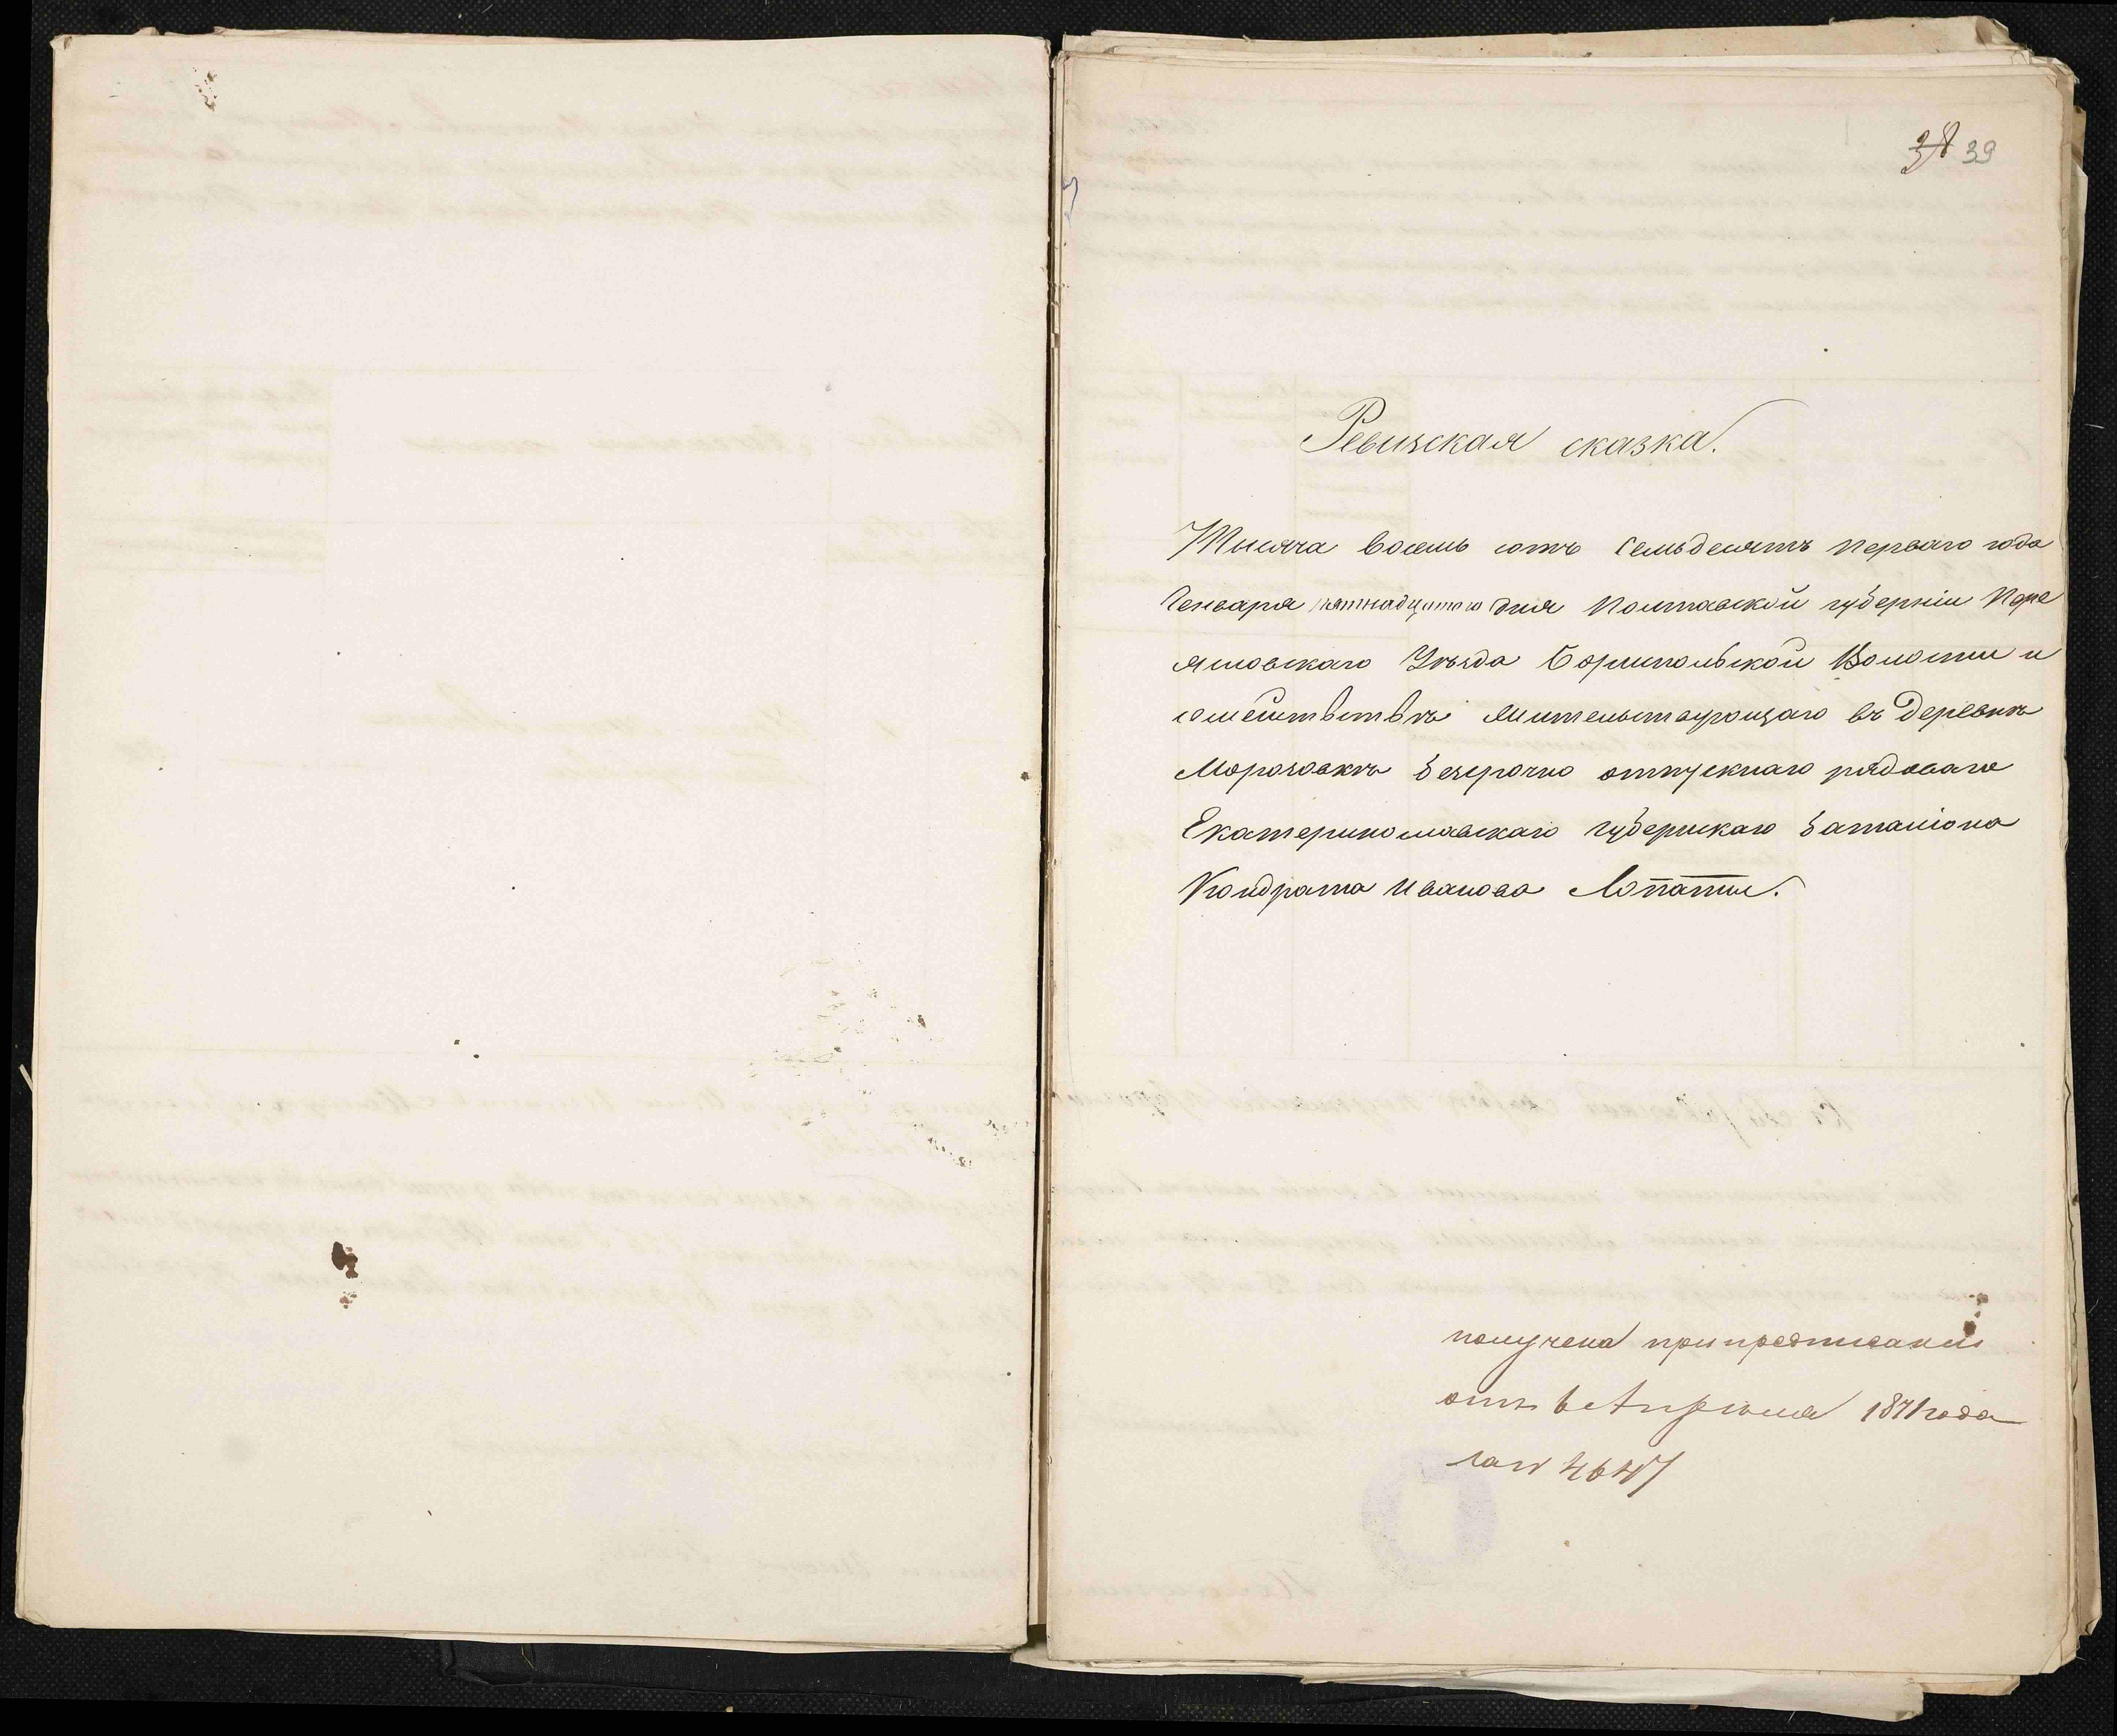 38 39
Ревизская сказка.
Тысяча восемь сотъ семьдесятъ перваго года
Генваря пятнадцатого дня Полтавской губерніи Пере
яславскаго Уѣзда Бориспольской Волости и
семействѣ жительствующаго въ деревнѣ
Морозовкѣ безсрочно отпускнаго рядоваго
Екатеринославскаго губернскаго баталіона
Кондрата Иванова Лопаты.
получена при предписаніи
отъ 6 Апрѣля 1871 года
за № 4647